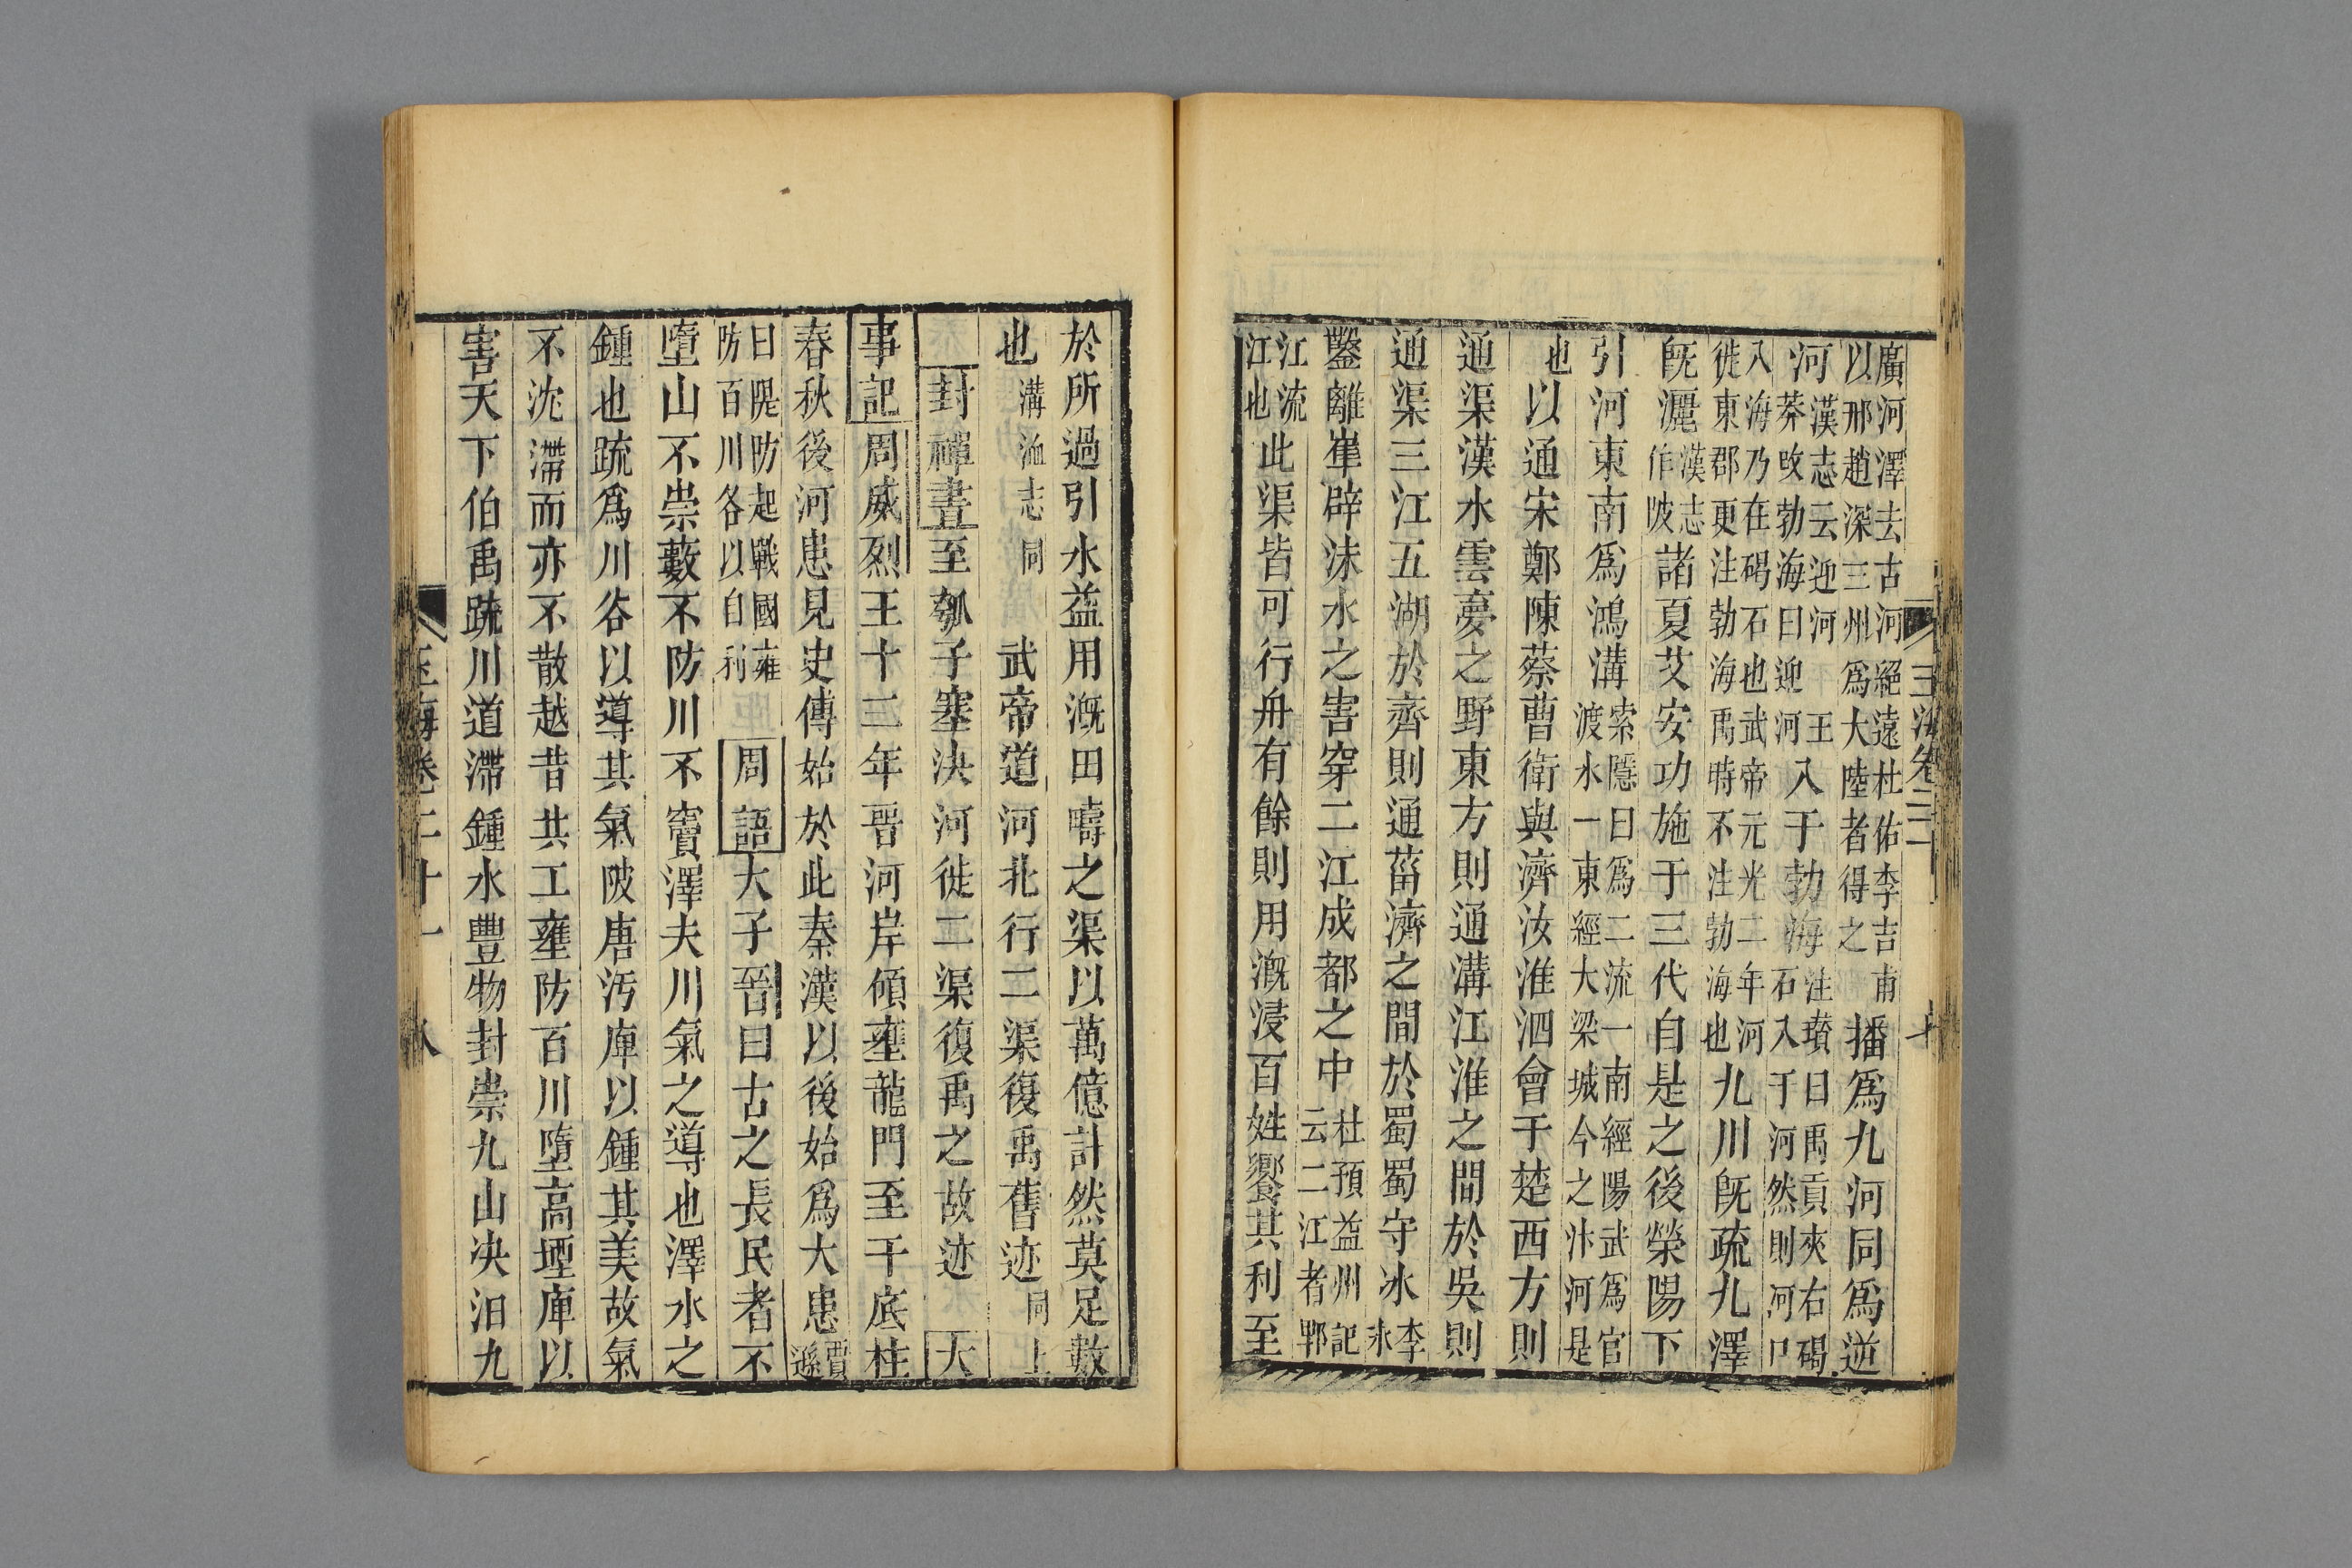 玉海卷二十
廣河澤去古河絕遠杜佑李吉甫
以邢趙深三州爲大陸者得之播爲九河同爲逆
河漢志云迎河王
莽改勃海曰迎河入于勃海注瓚曰禹貢夾右碣
石入于河然則河口
入海乃在碣石也武帝元光二年河
徙東郡更注勃海禹時不注勃海也九川旣疏九澤
旣灑漢志
作陂諸夏艾安功施于三代自是之後榮陽下
引河東南爲鴻溝索隱曰爲二流一南經陽武爲官
渡水一東經大梁城今之汴河是
也以通宋鄭陳蔡曹衛與濟汝淮泗會于楚西方則
通渠漢水雲夢之野東方則通溝江淮之間於吳則
通渠三江五湖於齊則通菑濟之間於蜀蜀守冰李
氷
鑿離崋辟沫水之害穿二江成都之中杜預益州記
云二江者郫
江流
江也此渠皆可行舟有餘則用漑浸百姓饗其利至
於所過引水益用漑田疇之渠以萬億計然莫足數
也溝洫志同武帝道河北行二渠復禹舊迹同上
封禪書至瓠子塞決河徙二渠復禹之故迹大
事記周威烈王十三年晉河岸傾壅龍門至于底柱
春秋後河患見史傳始於此秦漢以後始爲大患賈
遜
曰隄防起戰國雍
防百川各以自利周語大子晉曰古之長民者不
墮山不崇藪不防川不竇澤夫川氣之導也澤水之
鍾也疏爲川谷以導其氣陂唐汚庳以鍾其美故氣
不沈滯而亦不散越昔共工壅防百川墮高堙庳以
害天下伯禹疏川道滯鍾水豐物封崇九山決汨九
玉海卷二十一 八